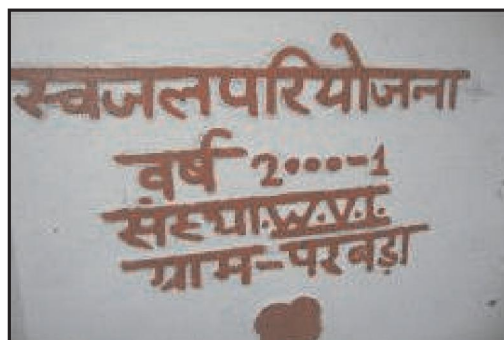 स्वजल परियोजना
वर्ष 2000-1
संस्था W.V.I.
ग्राम-परबड़ा